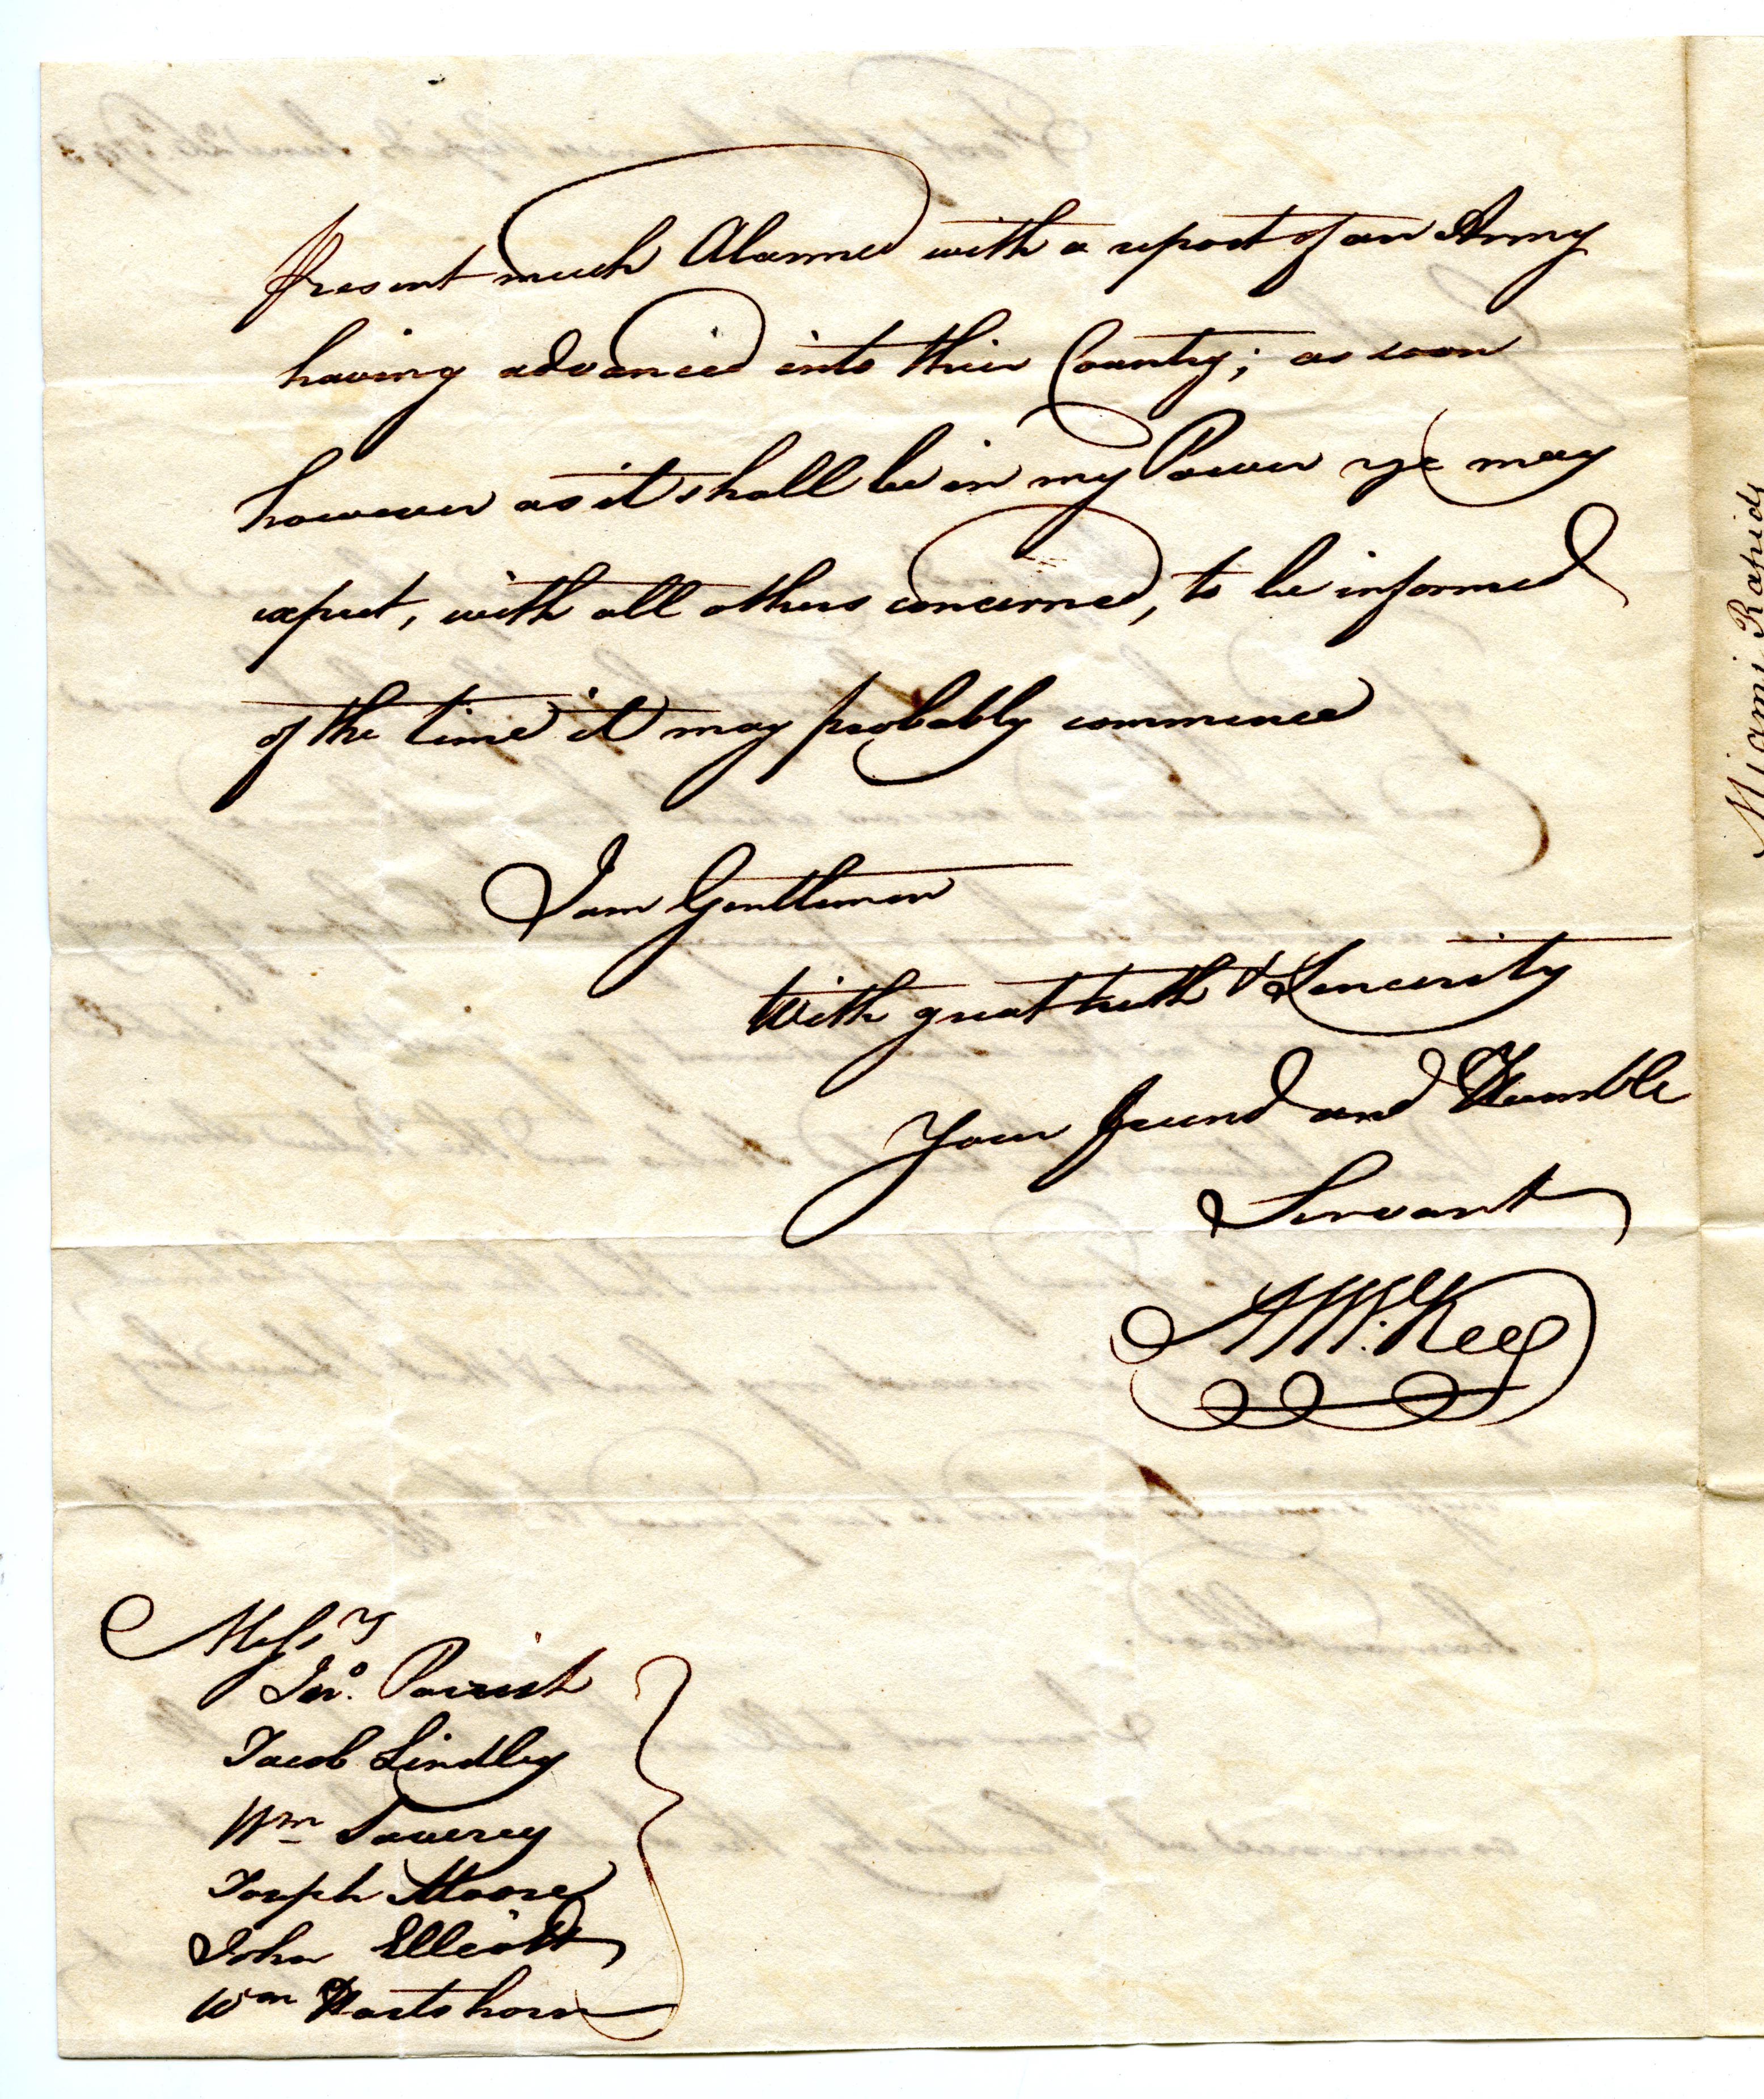 present much Alarmed with a report of an Army
having advanced into their Country; as soon
however as it shall be in my Power ye may
expect, with all others concerned, to be informed
of the time it may probably commence
I am Gentlemen
With great truth & Sincerity
Your friend and Humble
Servant
A McKee
Messrs
Jno. Parrish
Jacob Lindley
Wm Savery
Joseph Moore
John Elliott
Wm Hartshorn
Miami Rapids